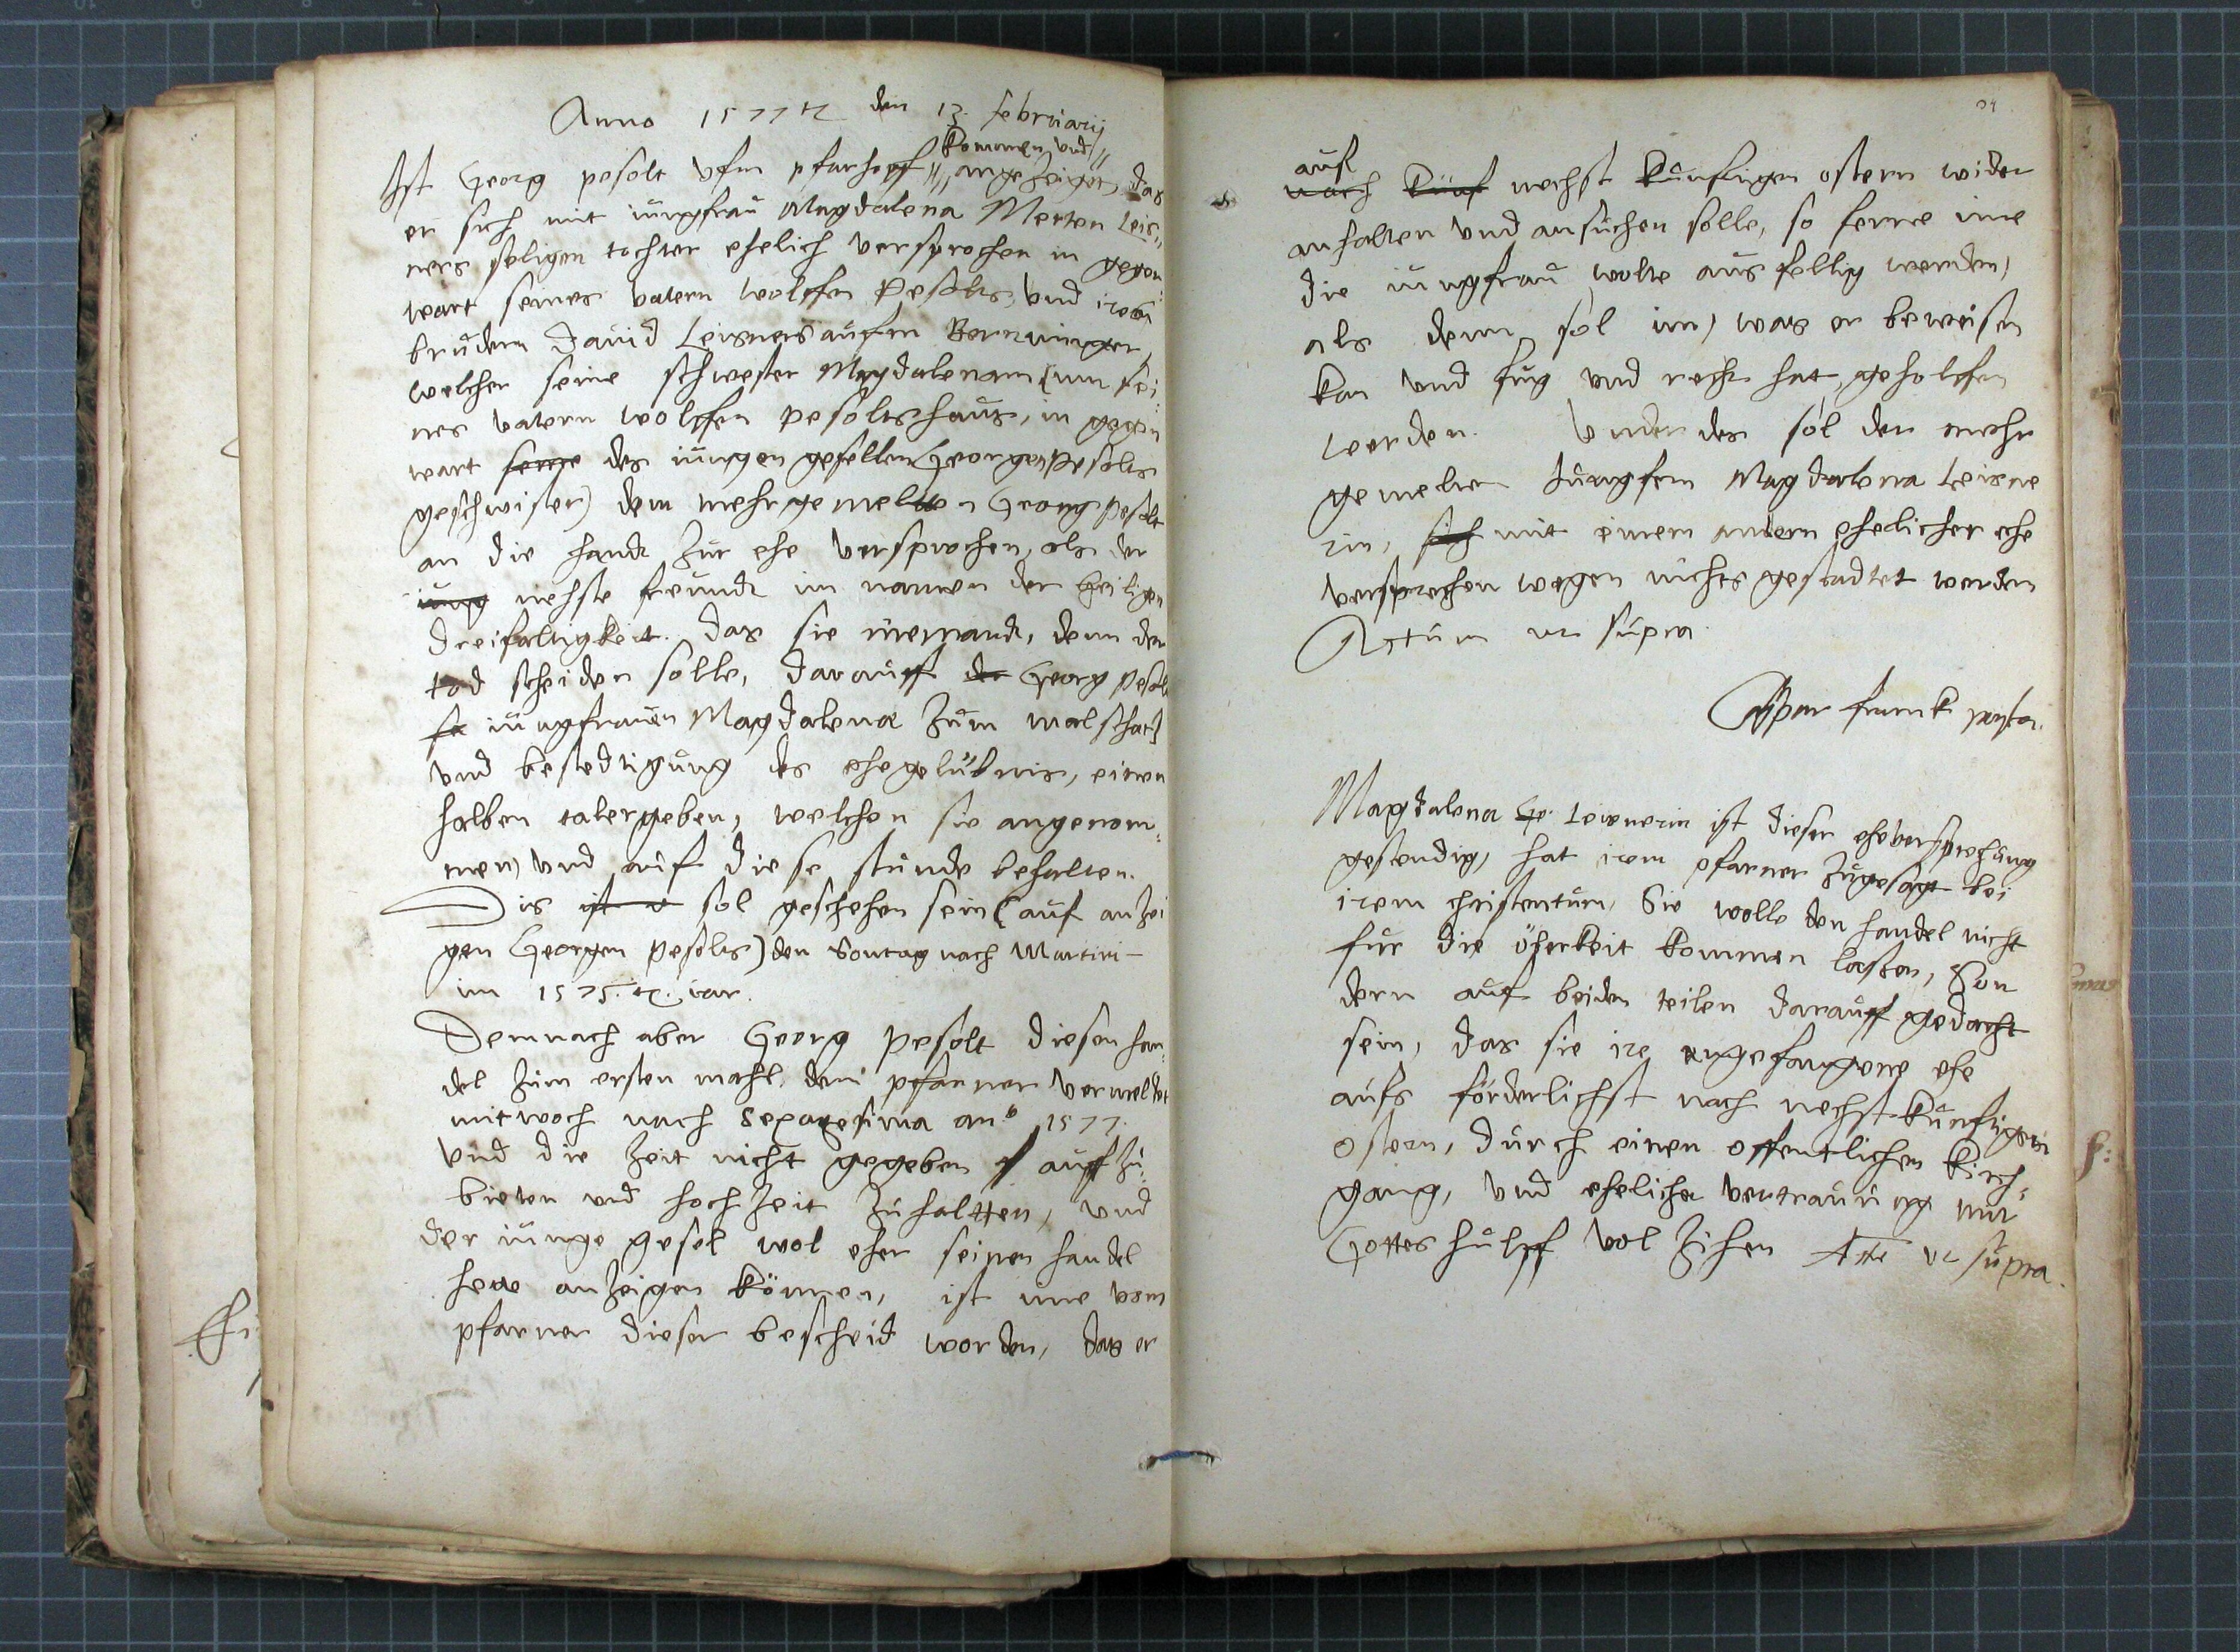 Anno 1577 tz den 13. februarij
kommen und
Ist Georg pesolt vfm pfarhoff angezeiget, das
er sich mit iungfrau Magdalena Merten Leis„
ners seligen tochter ehelich versprochen in gegen„
wart seines vatern wolffen Pesolts, vnd ires
brudern Dauid Leisners aufm
welcher seine schwester Magdalenam (inn sei„
nes vatern wolffen pesolts haus, in gegen
wart des iungen gesellen Georgen Pesolts
geschwister) dem mehrgemelten Georg Pesolt
an die handt zur ehe versprochen, als der
iung nehste freundt im namen der heiligen
Dreifaltigkeit. Das sie niemandt, denn der
tod scheiden solle, Darauff Georg Pesolt
iungfrauen Magdalena zum malschatz
vnd bestedtigung des ehegelübnis, einen
halben taler geben, welchen sie angenom„
men, vnd auf diese stunde behalten.
Dis ist sol geschehen sein (auf anzei
gen Georgen Pesolts) den Sontag nach Martini
im 1575. tz. iar.
Demnach aber Georg Pesolt diesen han„
del zum ersten mahl, dem pfarner vermeldet
mitwoch nach Septuagesima ano 1577.
Vnd die Zeit nicht gegeben auffzu„
bieten vnd hochzeit zuhaltten, vnd
der iunge gesel wol eher seinen handel
hette anzeigen können, ist ime vom
pfarner dieser bescheid worden, das er
auf
nach künf nechst künfftigen ostern wider
anhalten vnd ansuchen solle, so ferne ime
die iungfrau wolte ausfellig werden,
als denn sol im, was er beweisen
kan vnd fug vnd recht hat, geholffen
werden. Vnter des sol der mehr
gemelten Jungfern Magdalena Leisne
rin, sich mit einem andern ehelicher ehe
versprechen wegen nichts gestadtet werden
Actum ut supra.
Caspar franck pastor.
Magdalena Leisnerin ist dieser eheversprechung
gestendig, hat irem pfarner zugesagt bei
irem christentum, Sie wolle den handel nicht
für die öberkeit kommen lassen, Son
dern auf beiden teilen darauff gedacht
sein, das sie ire angefangene ehe
aufs förderlichst nach nechst künfftigen
ostern, durch einen offentlichen kirch„
gang, vnd ehelicher vertrauung mit
Gottes hülff volzihen Actū ut supra.